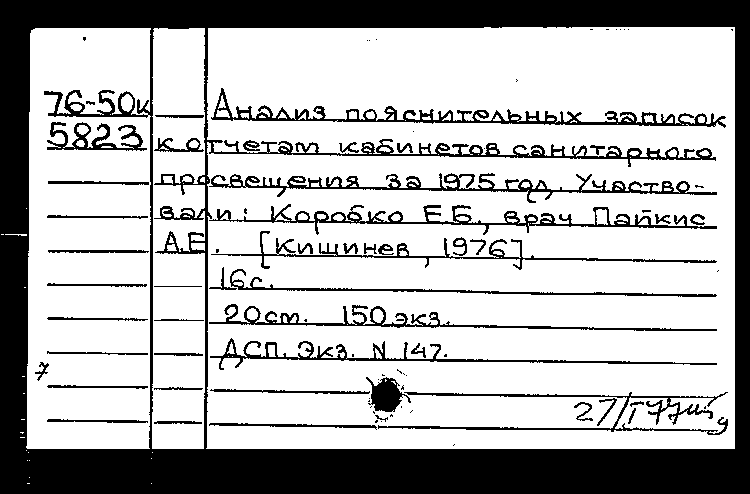 76-50к Анализ пояснительных записок
5823 к отчетам кабинетов санитарного
просвещения за 1975 год. Участво-
вали: Коробко Е.Б., врач Пайкис
А.Е. [Кишинев, 1976].
16с.
20ст. 150 экз.
ДСП. Экз. N 147.
7
27/I 77